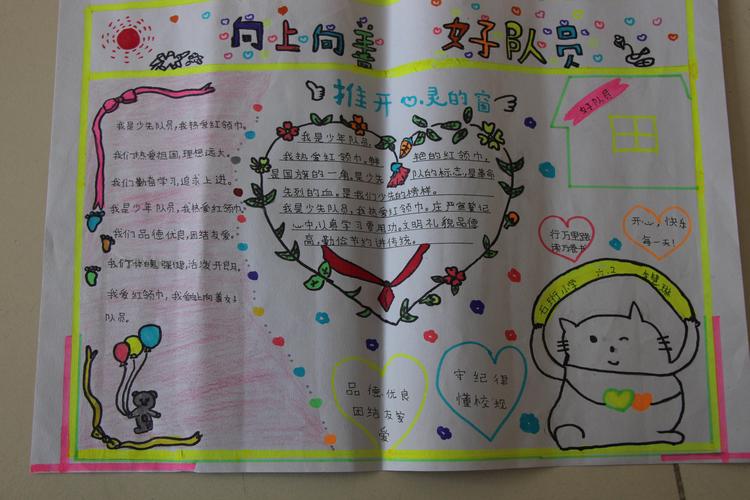 向上向善 好队员
我是少先队员,我热爱红领巾。
我们热爱祖国,理想远大。
我们勤奋学习,追求上进。
我是少年队员,我热爱红领巾。
我们品德优良,团结友爱。
我们体魄强健,活泼开朗。
我爱红领巾,我会向上向善好
队员。
推开心灵的窗
我是少年队员,
我热爱红领巾。鲜艳的红领巾,
是国旗的一角。是少先队的标志,是革命
先烈的血。是我们少先的榜样。
我是少先队员,我热爱红领巾。庄严宣誓记
心中,从身学习费用功。文明礼貌品德
高,勤俭节约讲传统。
好队员
行万里路
读万卷书
开心,快乐
每一天!
石桥小学 六.2
品德优良
团结友家
爱
守纪律
懂校规